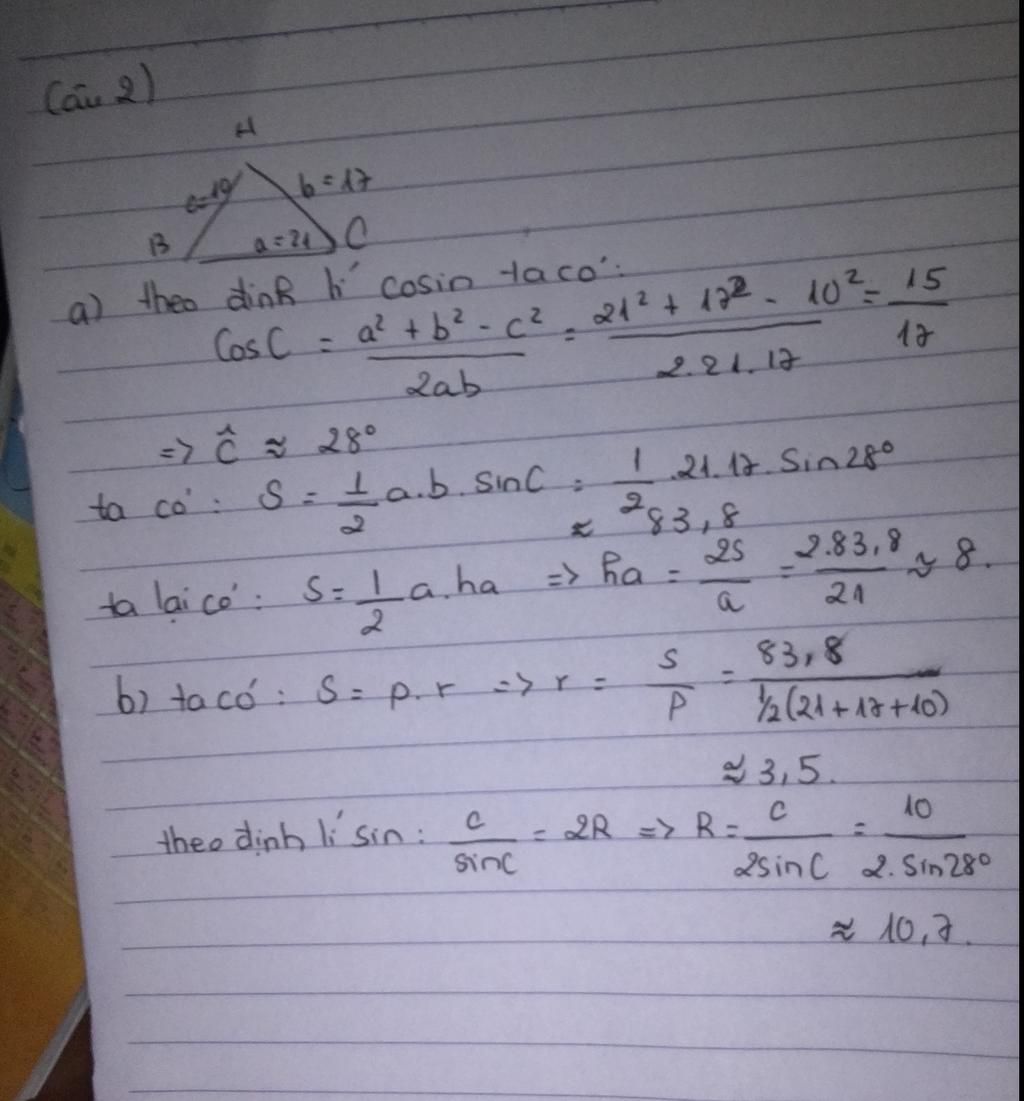 Câu 2)
A
c=10 b = 17
B a = 21 C
a) theo định lí cosin ta có:
CosC = a² + b² - c² / 2ab = 21² + 17² - 10² / 2.21.17 = 15/17
=> Ĉ ≈ 28°
ta có: S = 1/2 a.b.sinC = 1/2 .21.17.Sin28°
≈ 83,8
ta lại có: S = 1/2 a.ha => ha = 2S/a = 2.83,8/21 ≈ 8.
b) ta có: S = p.r => r = S/P = 83,8 / ½(21+17+10)
≈ 3,5.
theo định lí sin: c/sinC = 2R => R = c/2sinC = 10/2.Sin28°
≈ 10,7.